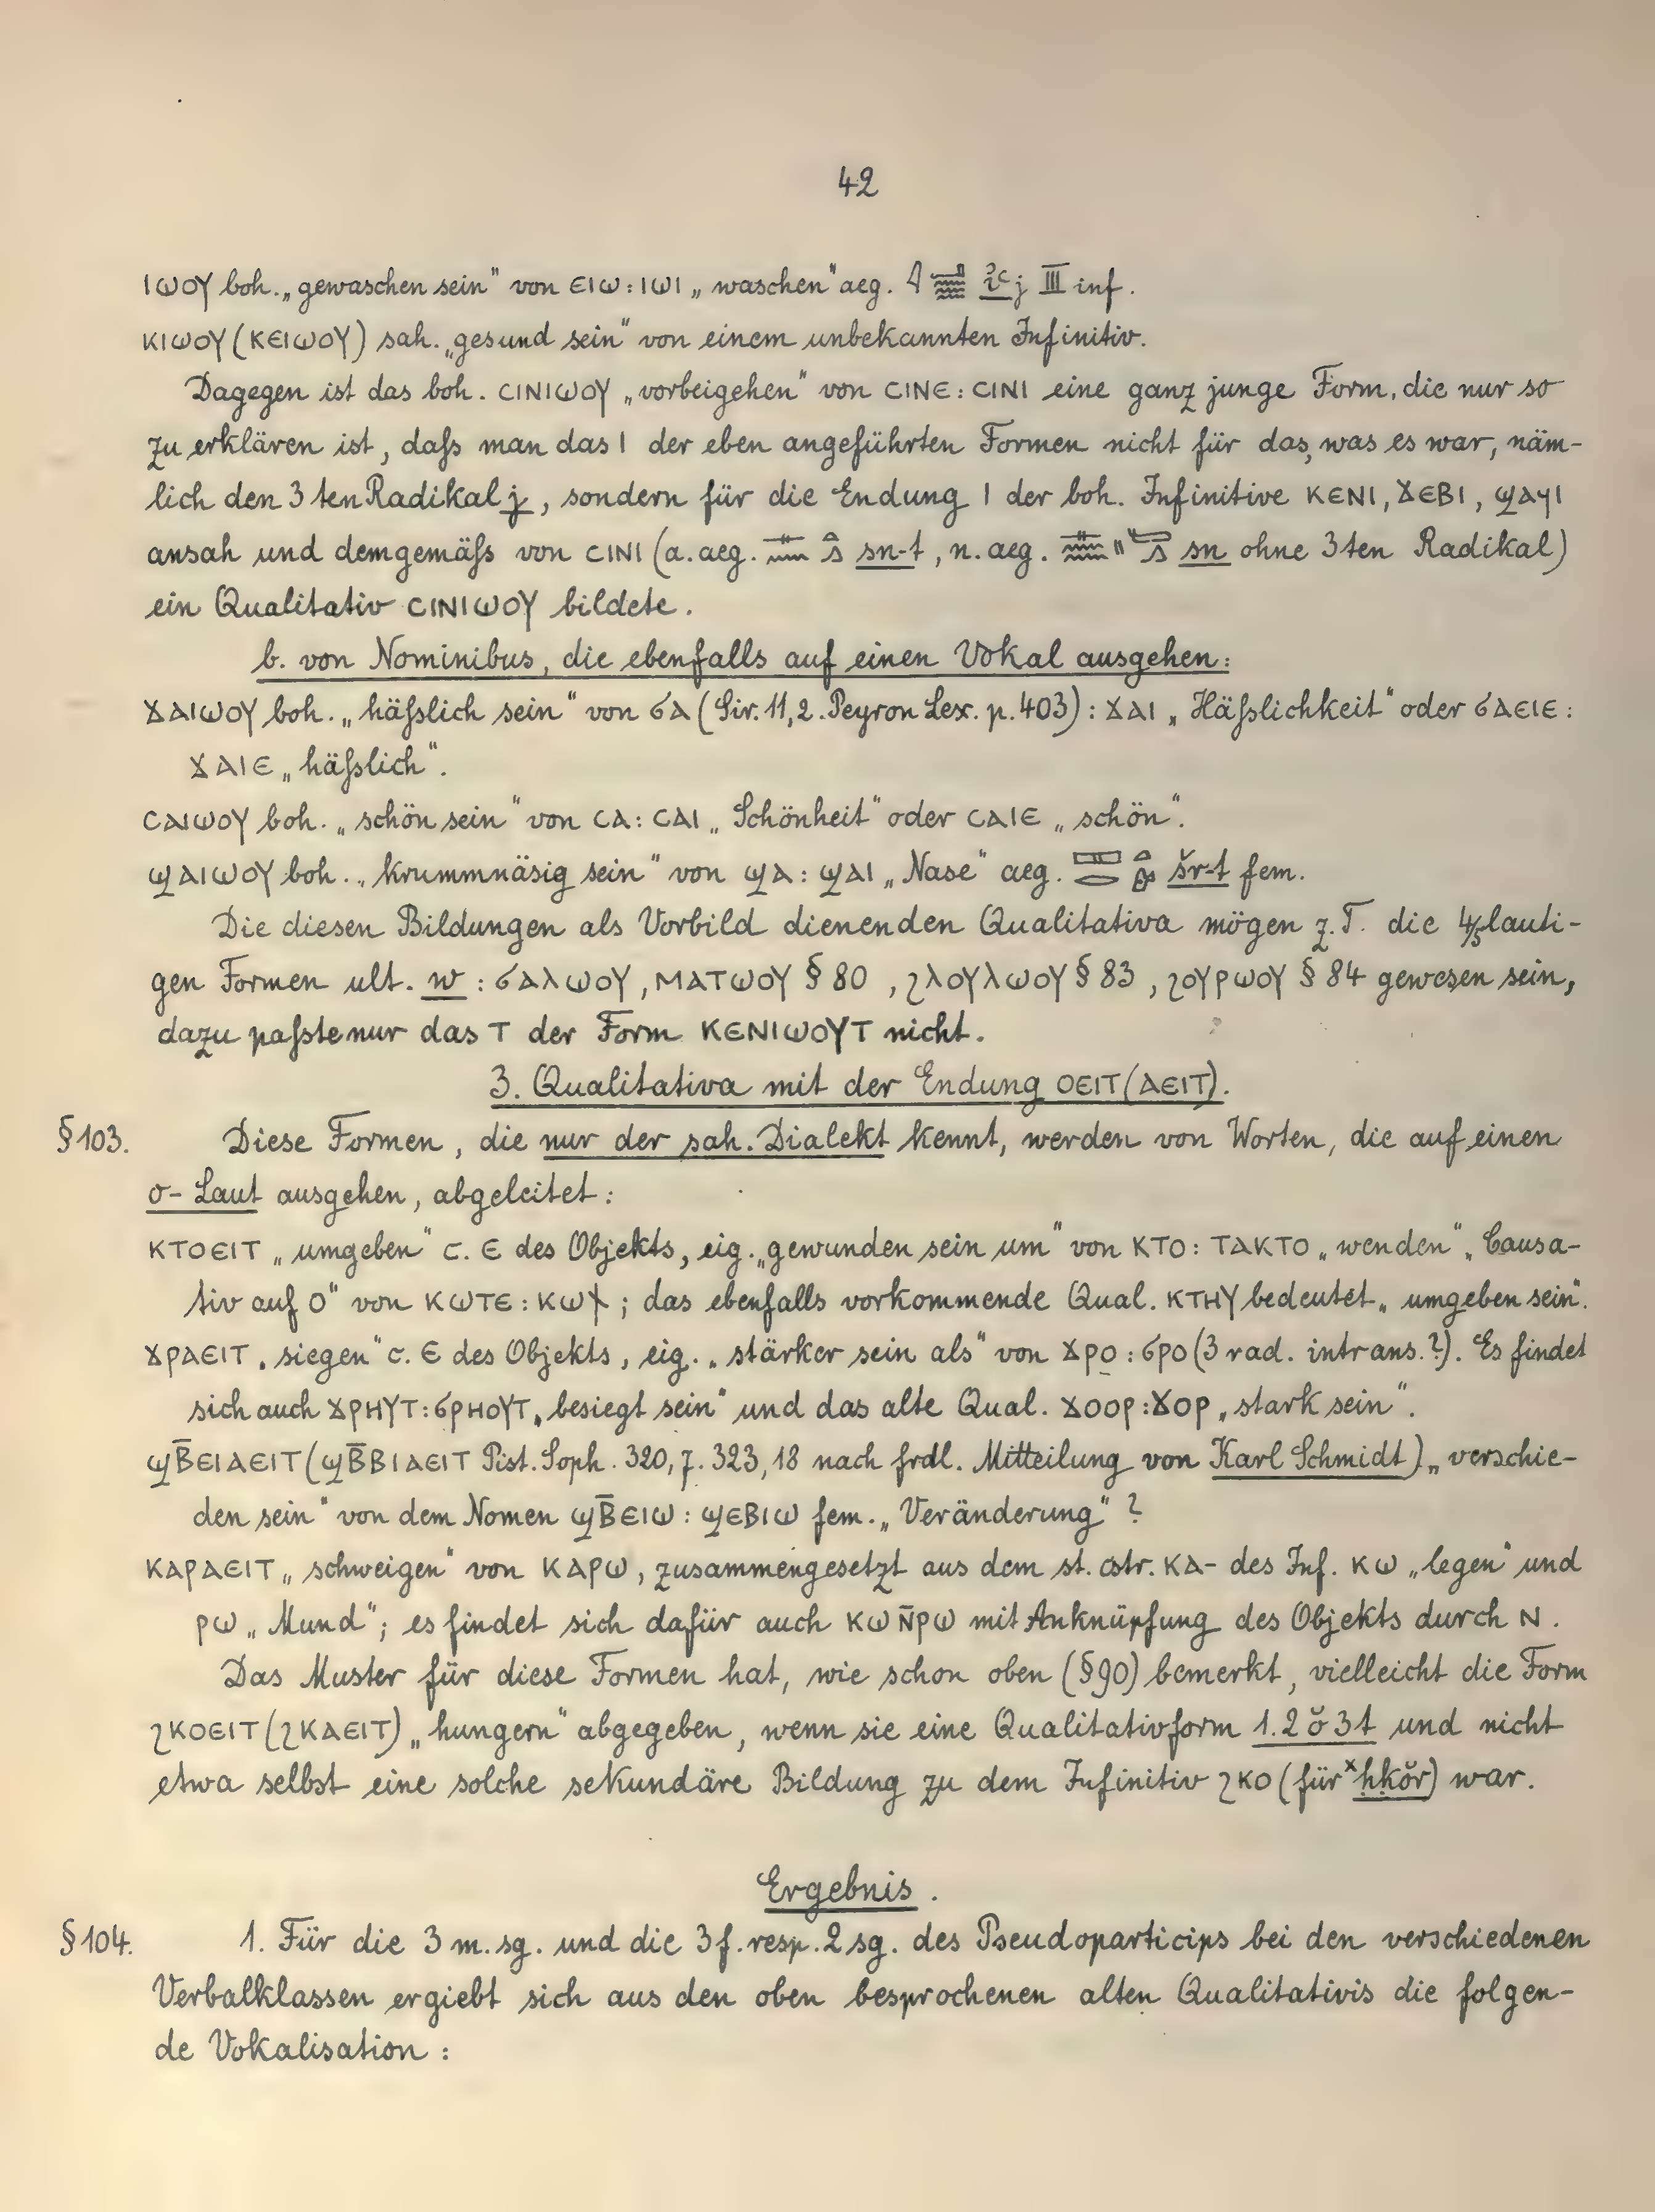 42
ⲓⲱⲟⲩ boh. „gewaschen sein“ von ⲉⲓⲱ : ⲓⲱⲓ „waschen“ aeg. j III inf.
ⲕⲓⲱⲟⲩ (ⲕⲉⲓⲱⲟⲩ) sah. „gesund sein“ von einem unbekannten Infinitiv.
Dagegen ist das boh. ⲥⲓⲛⲓⲱⲟⲩ „vorbeigehen“ von ⲥⲓⲛⲉ : ⲥⲓⲛⲓ eine ganz junge Form, die nur so
zu erklären ist, daſs man das ⲓ der eben angeführten Formen nicht für das, was es war, näm-
lich den 3ten Radikal j, sondern für die Endung ⲓ der boh. Infinitive ⲕⲉⲛⲓ, ϫⲉⲃⲓ, ϣⲁϥⲓ
ansah und demgemäſs von ⲥⲓⲛⲓ (a. aeg. sn-t, n. aeg. sn ohne 3ten Radikal)
ein Qualitativ ⲥⲓⲛⲓⲱⲟⲩ bildete.
b. von Nominibus, die ebenfalls auf einen Vokal ausgehen:
ϫⲁⲓⲱⲟⲩ boh. „häſslich sein“ von ϭⲁ (Sir. 11,2. Peyron Lex. p. 403) : ϫⲁⲓ „Häſslichkeit“ oder ϭⲁⲉⲓⲉ :
ϫⲁⲓⲉ „häſslich“.
ⲥⲁⲓⲱⲟⲩ boh. „schön sein“ von ⲥⲁ : ⲥⲁⲓ „Schönheit“ oder ⲥⲁⲓⲉ „schön“.
ϣⲁⲓⲱⲟⲩ boh. „krummnäsig sein“ von ϣⲁ : ϣⲁⲓ „Nase“ aeg. šr-t fem.
Die diesen Bildungen als Vorbild dienenden Qualitativa mögen z. T. die 4/5lauti-
gen Formen ult. w : ϭⲁⲗⲱⲟⲩ, ⲙⲁⲧⲱⲟⲩ § 80, ϩⲗⲟⲩⲗⲱⲟⲩ § 83, ϩⲟⲩⲣⲱⲟⲩ § 84 gewesen sein,
dazu paſste nur das ⲧ der Form ⲕⲉⲛⲓⲱⲟⲩⲧ nicht.
3. Qualitativa mit der Endung ⲟⲉⲓⲧ (ⲁⲉⲓⲧ).
§ 103. Diese Formen, die nur der sah. Dialekt kennt, werden von Worten, die auf einen
o-Laut ausgehen, abgeleitet:
ⲕⲧⲟⲉⲓⲧ „umgeben“ c. ⲉ des Objekts, eig. „gewunden sein um“ von ⲕⲧⲟ : ⲧⲁⲕⲧⲟ „wenden“, „Causa-
tiv auf ⲟ“ von ⲕⲱⲧⲉ : ⲕⲱϯ ; das ebenfalls vorkommende Qual. ⲕⲧⲏⲩ bedeutet „umgeben sein“.
ϫⲣⲁⲉⲓⲧ „siegen“ c. ⲉ des Objekts, eig. „stärker sein als“ von ϫⲣⲟ : ϭⲣⲟ (3 rad. intrans.?). Es findet
sich auch ϫⲣⲏⲩⲧ : ϭⲣⲏⲟⲩⲧ „besiegt sein“ und das alte Qual. ϫⲟⲟⲣ : ϫⲟⲣ „stark sein“.
ϣⲃ̄ⲉⲓⲁⲉⲓⲧ (ϣⲃ̄ⲃⲓⲁⲉⲓⲧ Pist. Soph. 320, 7. 323, 18 nach frdl. Mitteilung von Karl Schmidt) „verschie-
den sein“ von dem Nomen ϣⲃ̄ⲉⲓⲱ : ϣⲉⲃⲓⲱ fem. „Veränderung“ ?
ⲕⲁⲣⲁⲉⲓⲧ „schweigen“ von ⲕⲁⲣⲱ, zusammengesetzt aus dem st. cstr. ⲕⲁ- des Inf. ⲕⲱ „legen“ und
ⲣⲱ „Mund“; es findet sich dafür auch ⲕⲱ ⲛ̄ⲣⲱ mit Anknüpfung des Objekts durch ⲛ.
Das Muster für diese Formen hat, wie schon oben (§ 90) bemerkt, vielleicht die Form
ϩⲕⲟⲉⲓⲧ (ϩⲕⲁⲉⲓⲧ) „hungern“ abgegeben, wenn sie eine Qualitativform 1.2ŏ3t und nicht
etwa selbst eine solche sekundäre Bildung zu dem Infinitiv ϩⲕⲟ (für ˣḥḳŏr) war.
Ergebnis.
§ 104. 1. Für die 3 m. sg. und die 3 f. resp. 2 sg. des Pseudoparticips bei den verschiedenen
Verbalklassen ergiebt sich aus den oben besprochenen alten Qualitativis die folgen-
de Vokalisation :